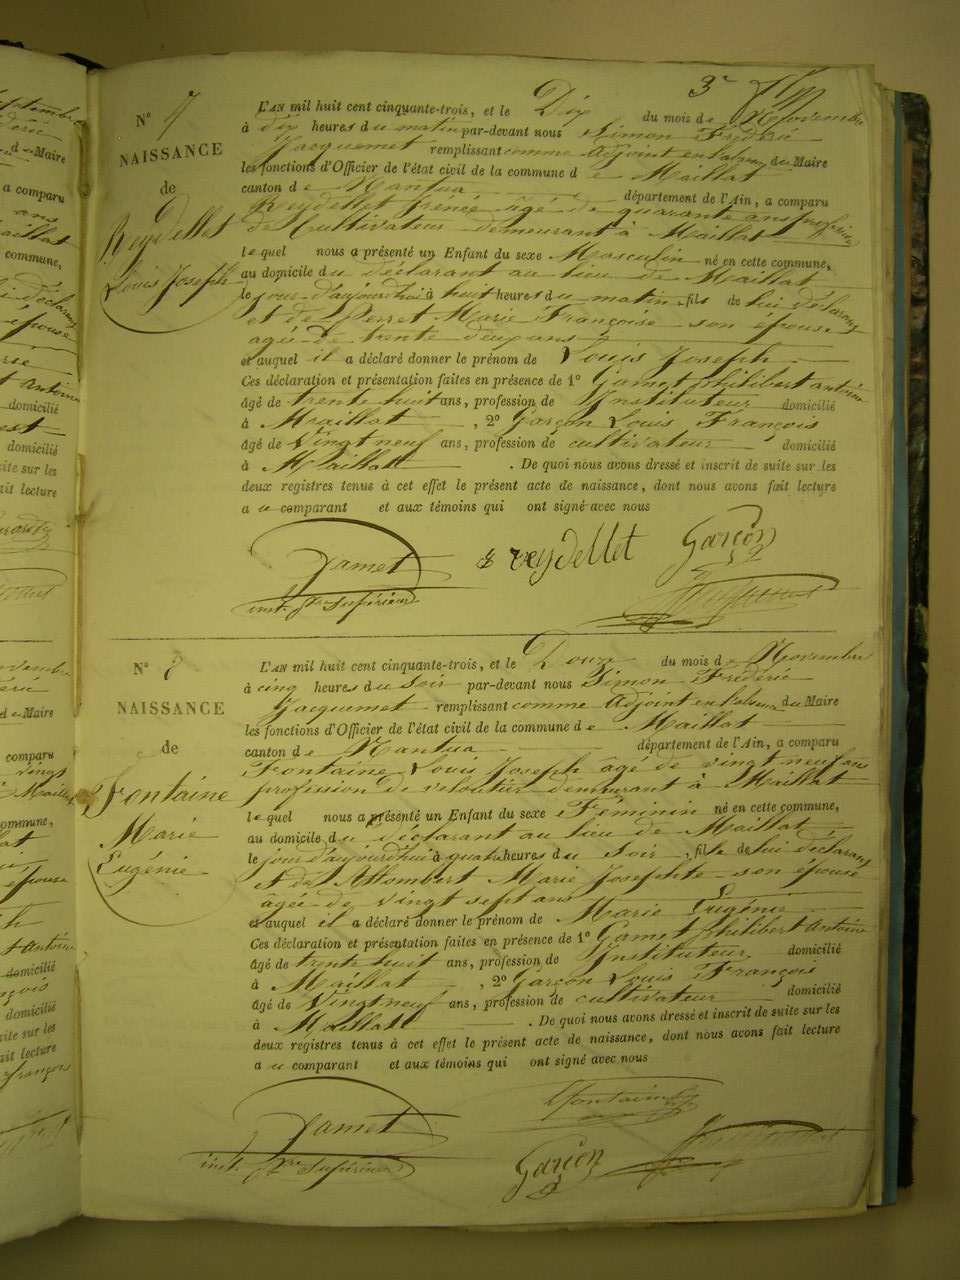 3e
N° 7
NAISSANCE
de
Reydellet
Louis Joseph
L'AN mil huit cent cinquante-trois, et le Dix du mois de Novembre
à dix heures du matin par-devant nous Simon Frédéric
Jacquemet remplissant comme Adjoint en l'absence du Maire
les fonctions d'Officier de l'état civil de la commune de Maillat
canton de Nantua département de l'Ain, a comparu
Reydellet âgé de quarante ans profession
de Cultivateur demeurant à Maillat
lequel nous a présenté un Enfant du sexe Masculin né en cette commune,
au domicile du déclarant au lieu de Maillat
le jour d'aujourdhui à huit heures du matin, fils de lui déclarant
et de Perret Marie Françoise son épouse
agée de trente deux ans
et auquel il a déclaré donner le prénom de Louis Joseph
Ces déclaration et présentation faites en présence de 1° Gamet Philibert Antoine
âgé de trente huit ans, profession de Instituteur domicilié
à Maillat, 2° Garçon Louis François
âgé de Vingt neuf ans, profession de cultivateur domicilié
à Maillat. De quoi nous avons dressé et inscrit de suite sur les
deux registres tenus à cet effet le présent acte de naissance, dont nous avons fait lecture
au comparant et aux témoins qui ont signé avec nous
Gamet reydellet Garçon
inst. supérieur
N° 8
NAISSANCE
de
Fontaine
Marie
Eugénie
L'AN mil huit cent cinquante-trois, et le Douze du mois de Novembre
à cinq heures du soir par-devant nous Simon Frédéric
Jacquemet remplissant comme Adjoint en l'absence du Maire
les fonctions d'Officier de l'état civil de la commune de Maillat
canton de Nantua département de l'Ain, a comparu
Fontaine Louis Joseph âgé de vingt neuf ans
profession de veloutier demeurant à Maillat
lequel nous a présenté un Enfant du sexe Féminin né en cette commune,
au domicile du déclarant au lieu de Maillat
le jour d'aujourd'hui à quatre heures du soir, fille de lui déclarant
et de Allombert Marie Josephte son épouse
agée de vingt sept ans
et auquel il a déclaré donner le prénom de Marie Eugénie
Ces déclaration et présentation faites en présence de 1° Gamet Philibert Antoine
âgé de trente huit ans, profession de Instituteur domicilié
à Maillat, 2° Garçon Louis François
âgé de Vingt neuf ans, profession de cultivateur domicilié
à Maillat. De quoi nous avons dressé et inscrit de suite sur les
deux registres tenus à cet effet le présent acte de naissance, dont nous avons fait lecture
au comparant et aux témoins qui ont signé avec nous
Fontaine
Gamet
inst. supérieur Garçon